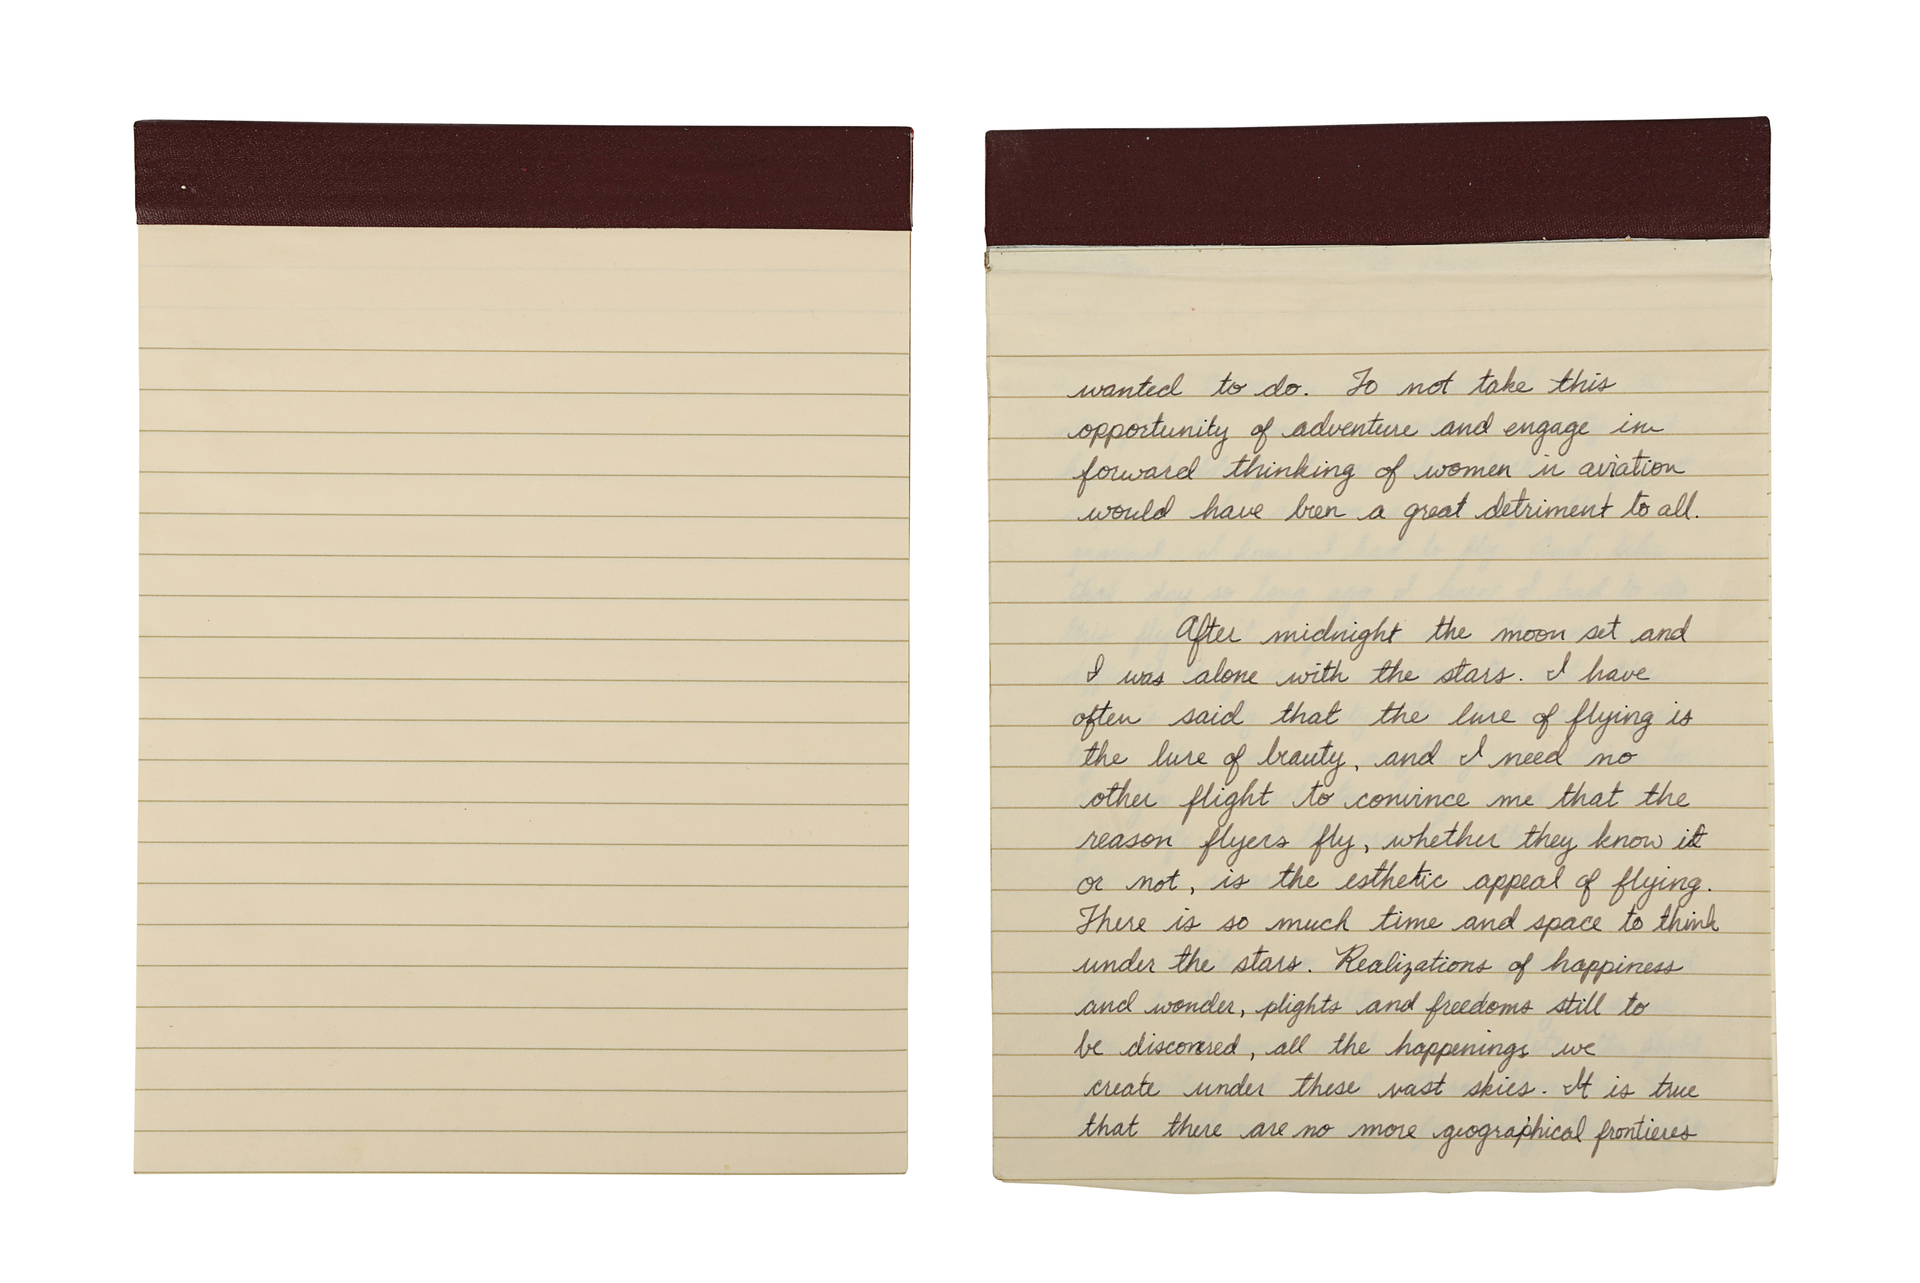 wanted to do. To not take this
opportunity of adventure and engage in
forward thinking of women in aviation
would have been a great detriment to all.
After midnight the moon set and
I was alone with the stars. I have
often said that the lure of flying is
the lure of beauty, and I need no
other flight to convince me that the
reason flyers fly, whether they know it
or not, is the esthetic appeal of flying.
There is so much time and space to think
under the stars. Realizations of happiness
and wonder, plights and freedoms still to
be discovered, all the happenings we
create under these vast skies. It is true
that there are no more geographical frontieres